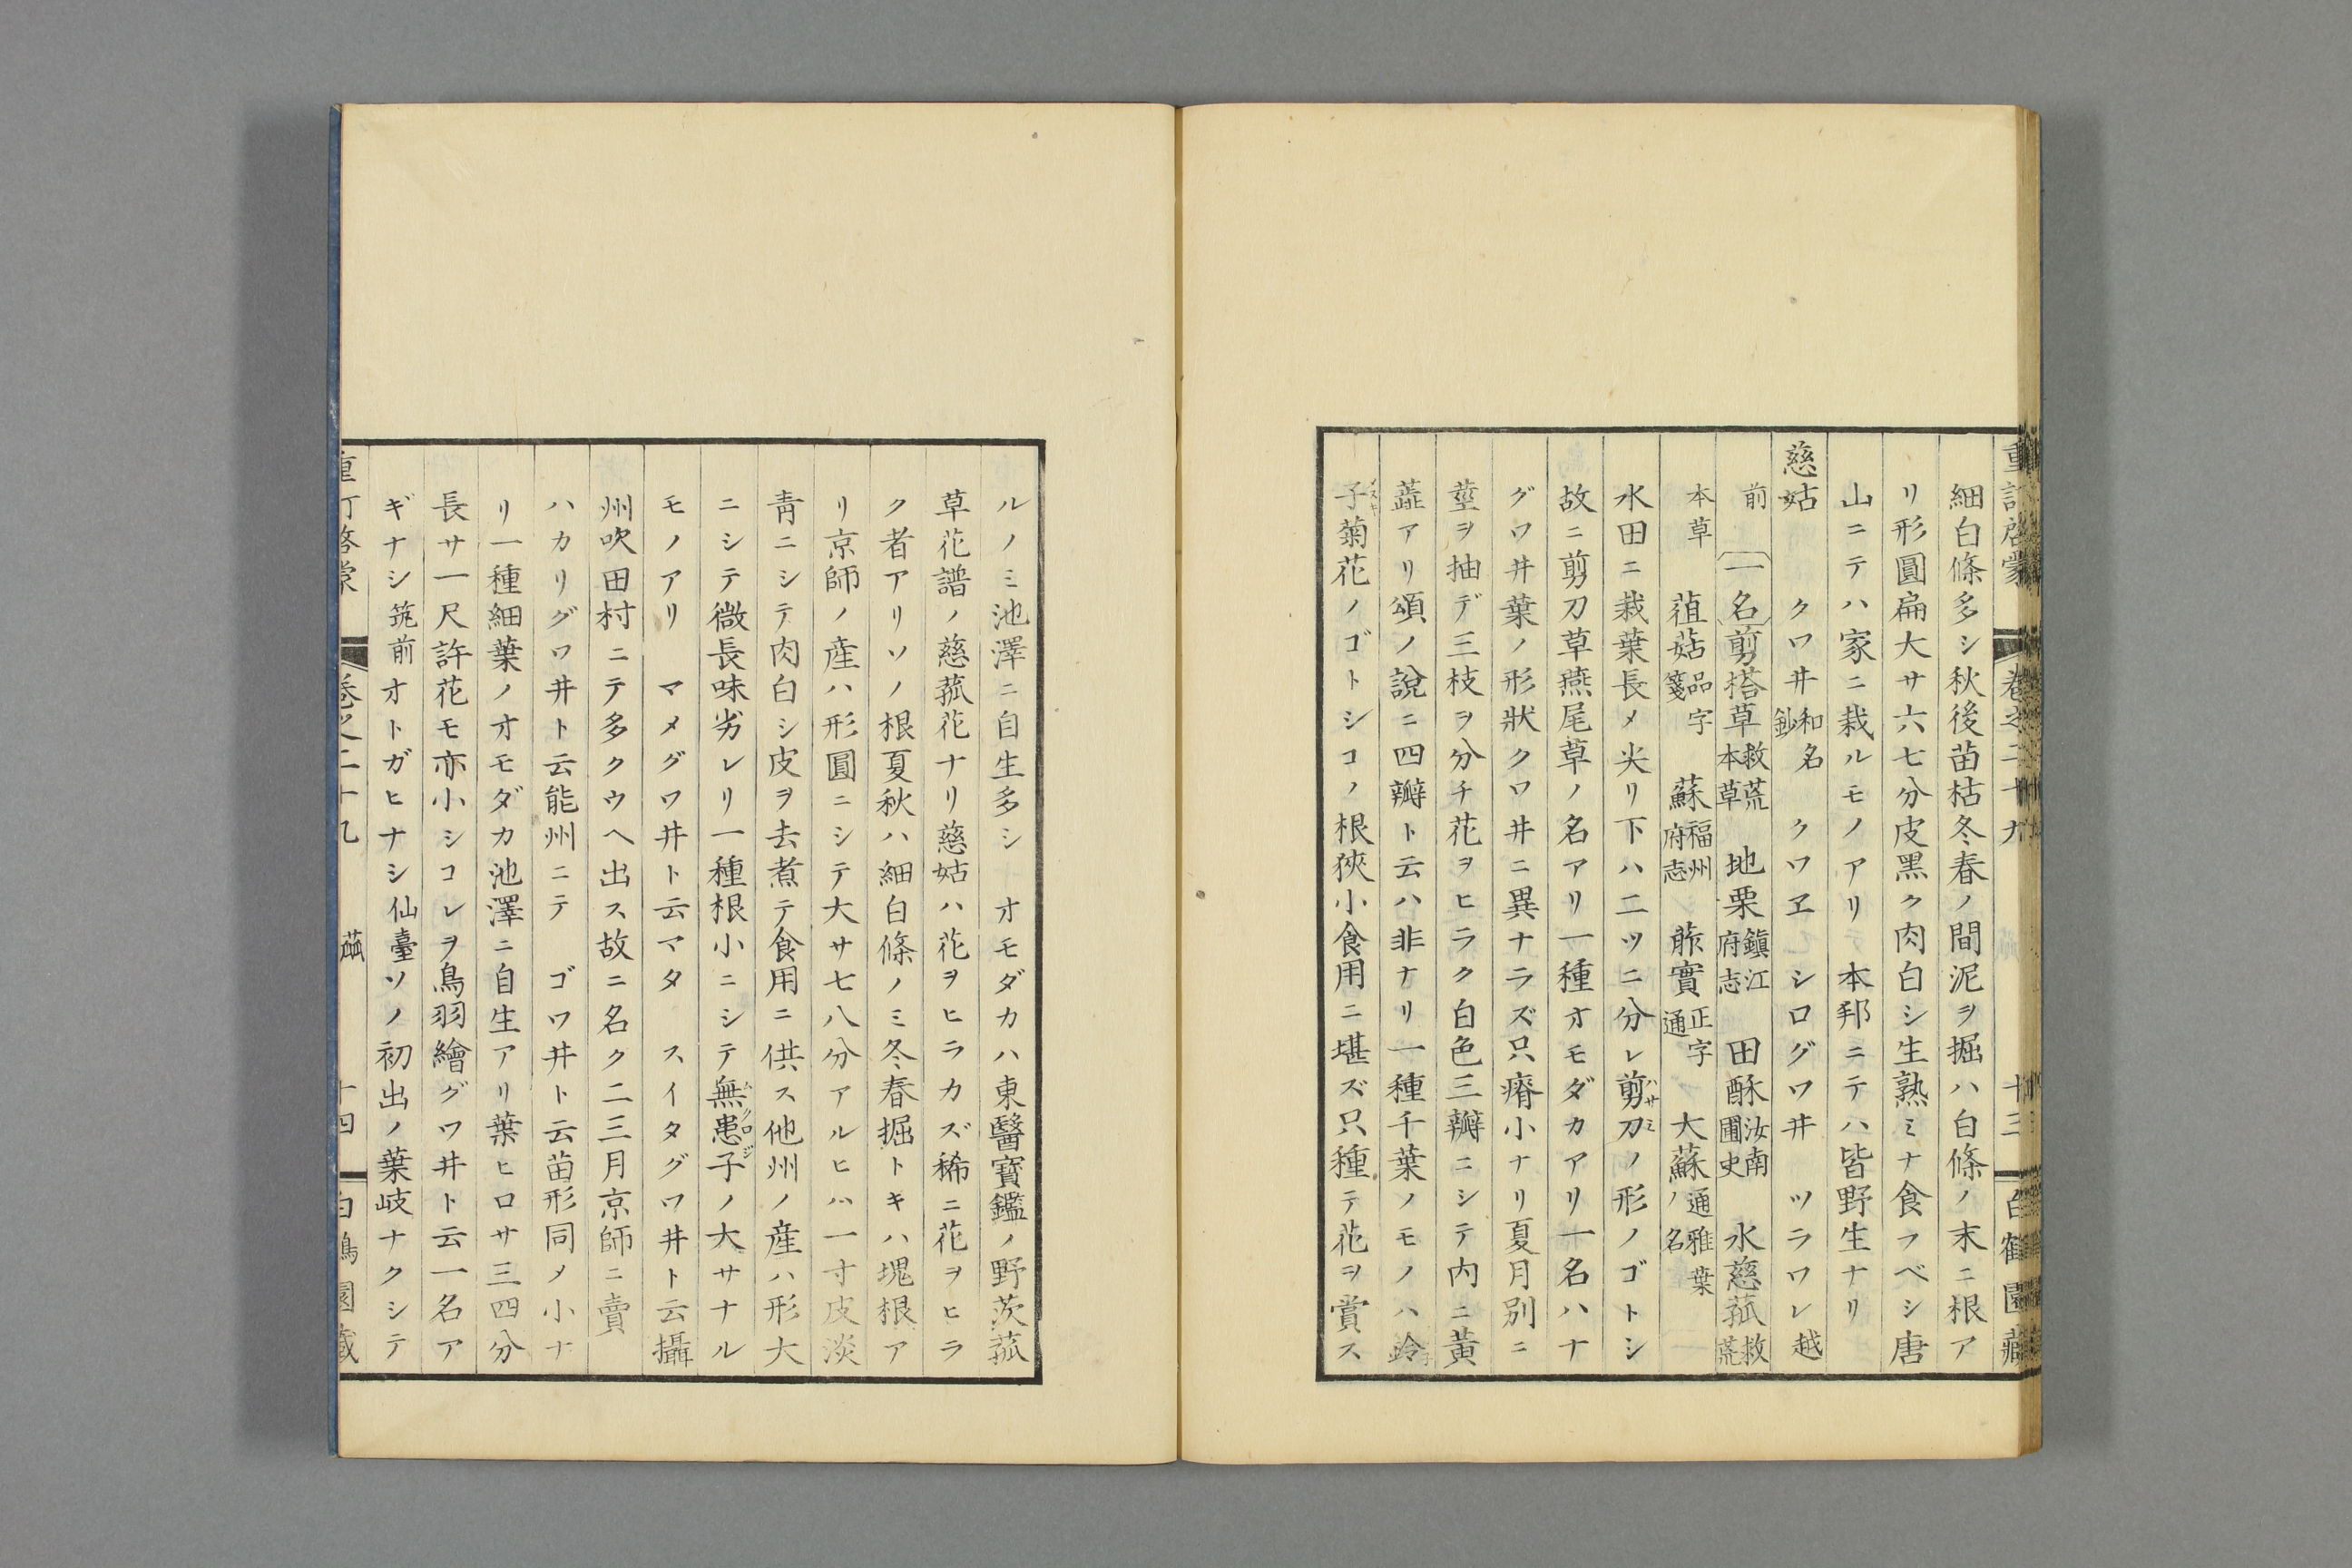 重訂啓蒙 卷之二十九 十三 白鶴園藏
細白條多シ秋後苗枯冬春ノ間泥ヲ掘ハ白條ノ末ニ根ア
リ形圓扁大サ六七分皮黑ク肉白シ生熟ミナ食フベシ唐
山ニテハ家ニ栽ルモノアリ 本邦ニテハ皆野生ナリ
慈姑 クワ井和名鈔 クワヱ シログワ井 ツラワレ越
前 一名剪搭草救荒本草 地栗鎭江府志 田酥汝南圃史 水慈菰救荒
本草 葅菇品字箋 蘇福州府志 葄實正字通 大蘇通雅葉ノ名
水田ニ栽葉長メ尖リ下ハ二ツニ分レ剪刀ハサミノ形ノゴトシ
故ニ剪刀草燕尾草ノ名アリ一種オモダカアリ一名ハナ
グワ井葉ノ形狀クワ井ニ異ナラズ只瘠小ナリ夏月別ニ
莖ヲ抽デ三枝ヲ分チ花ヲヒラク白色三瓣ニシテ内ニ黃
蘂アリ頌ノ說ニ四瓣ト云ハ非ナリ一種千葉ノモノハ
子菊花ノゴトシコノ根狹小食用ニ堪ズ只種テ花ヲ賞ス
ルノミ池澤ニ自生多シ オモダカハ東醫寶鑑ノ野茨菰
草花譜ノ慈菰花ナリ慈姑ハ花ヲヒラカズ稀ニ花ヲヒラ
ク者アリソノ根夏秋ハ細白條ノミ冬春掘トキハ塊根ア
リ京師ノ産ハ形圓ニシテ大サ七八分アルヒハ一寸皮淡
靑ニシテ肉白シ皮ヲ去煮テ食用ニ供ス他州ノ産ハ形大
ニシテ微長味劣レリ一種根小ニシテ無患子ムクロジノ大サナル
モノアリ マメグワ井ト云マタ スイタグワ井ト云攝
州吹田村ニテ多クウヘ出ス故ニ名ク二三月京師ニ賣
ハカリグワ井ト云能州ニテ ゴワ井ト云苗形同メ小ナ
リ一種細葉ノオモダカ池澤ニ自生アリ葉ヒロサ三四分
長サ一尺許花モ亦小シコレヲ鳥羽繪グワ井ト云一名ア
ギナシ筑前オトガヒナシ仙臺ソノ初出ノ葉岐ナクシテ
重訂啓蒙 卷之二十九 十四 白鶴園藏